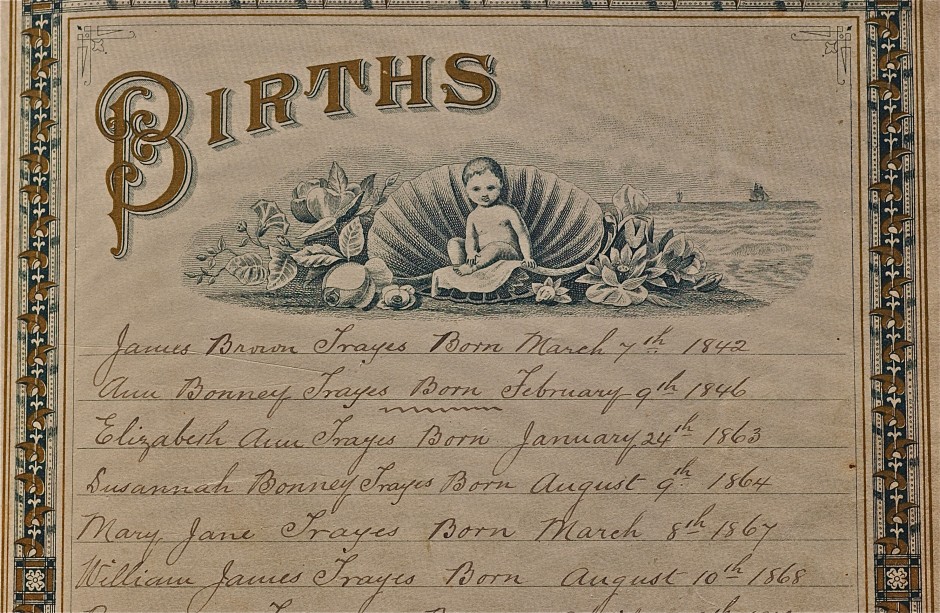 BIRTHS
James Brown Trayes Born March 7th 1842
Ann Bonney Trayes Born February 9th 1846
Elizabeth Ann Trayes Born January 24th 1863
Susannah Bonney Trayes Born August 9th 1864
Mary Jane Trayes Born March 8th 1867
William James Trayes Born August 10th 1868